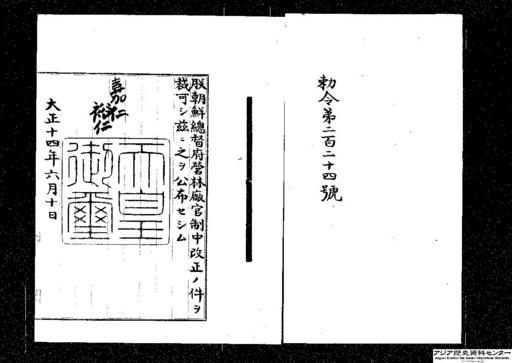 勅令第二百二十四號
朕朝鮮總督府營林廠官制中改正ノ件ヲ
裁可シ茲ニ之ヲ公布セシム
嘉仁
裕仁
天皇
御璽
大正十四年六月十日
アジア歴史資料センター
Japan Center for Asian Historical Records